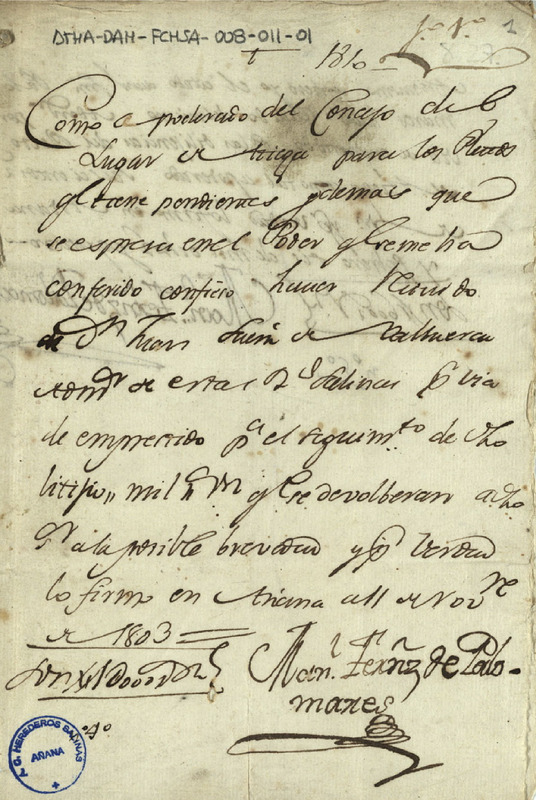 DTHA-DAH-FCHSA-008-011-01
1
1810
Como a poderado del Concejo de
Lugar de para los Pleitos
q.e tiene pendientes y demas que
se espresa en el Poder q.e se me ha
conferido confieso haver Recivido
de D.n Juan de Valluerca
Adm.or de estas R.s Salinas p.r via
de emprestido p.a el seguim.to de dho
litijio,, mil r.s v.n q.e se devolberan a dho
S.r a la posible brevedad y p.r verdad
lo firmo en Anana a 11 de Nov.re
de 1803
Man.l Fern.z de Palo-
mares
T. G. HEREDEROS SALINAS
AÑANA